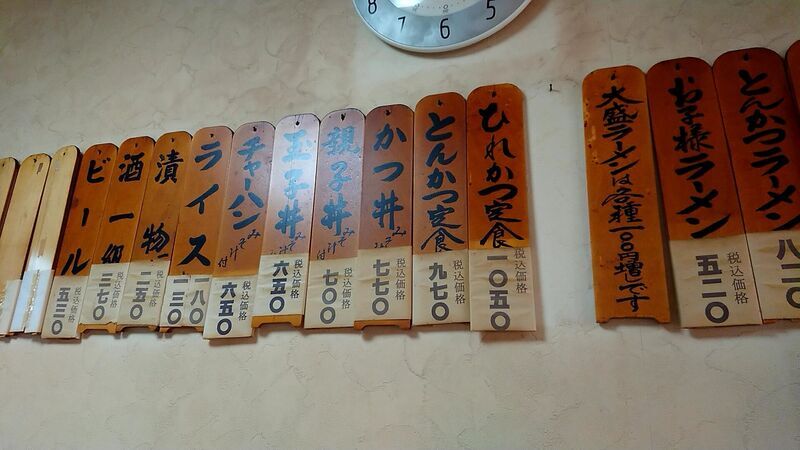 8 7 6 5
とんかつラーメン
お子様ラーメン
税込価格
五二〇
大盛ラーメンは各種一〇〇円増です
ひれかつ定食
税込価格
一〇五〇
とんかつ定食
税込価格
九七〇
かつ丼
みそ
税込価格
七七〇
親子丼
みそ汁付
税込価格
七〇〇
玉子丼
みそ
税込価格
六五〇
チャーハン
みそ汁付
税込価格
六五〇
ライス
一八〇
一三〇
漬物
税込価格
二五〇
酒一級
税込価格
三七〇
ビール
税込価格
五三〇